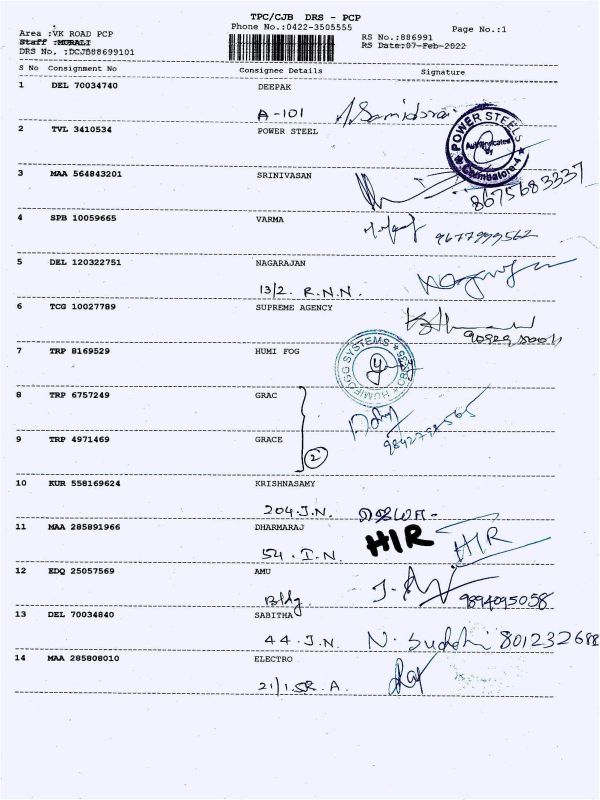 TPC/CJB DRS - PCP
Area :VK ROAD PCP Phone No.:0422-3505555 Page No.:1
Staff :MURALI RS No.:886991
DRS No. :DCJB88699101 RS Date:07-Feb-2022
S No Consignment No Consignee Details Signature
1 DEL 70034740 DEEPAK
A-101
2 TVL 3410534 POWER STEEL
POWER STEELS
Authenticated
By
Coimbatore-4
3 MAA 564843201 SRINIVASAN
8675683337
4 SPB 10059665 VARMA
9677999562
5 DEL 120322751 NAGARAJAN
13/2. R.N.N.
6 TCG 10027789 SUPREME AGENCY
7 TRP 8169529 HUMI FOG
HUMIFOGG SYSTEMS
8 TRP 6757249 GRAC
9 TRP 4971469 GRACE
2
10 KUR 558169624 KRISHNASAMY
204.I.N.
11 MAA 285891966 DHARMARAJ
54.I.N. HIR HIR
12 EDQ 25057569 AMU
Bldg. 9894095058
13 DEL 70034840 SABITHA
44.I.N. 801232688
14 MAA 285808010 ELECTRO